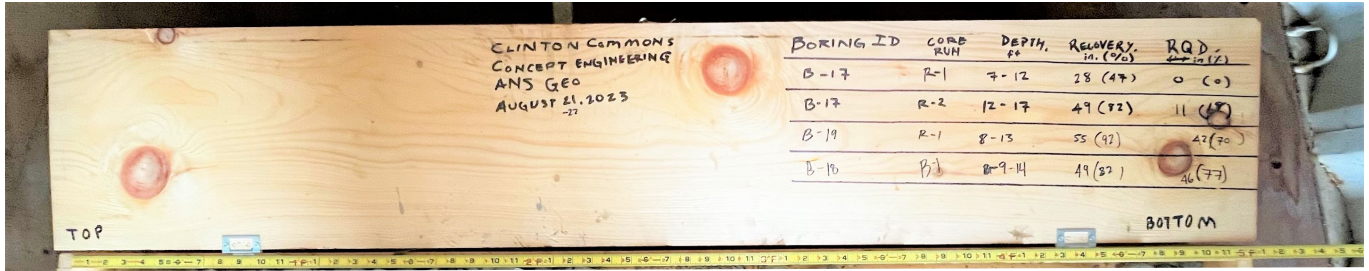 CLINTON COMMONS
CONCEPT ENGINEERING
ANS GEO
AUGUST 21, 2023
-22
BORING ID CORE RUN DEPTH, ft RECOVERY, in. (%) RQD, in (%)
B-17 R-1 7-12 28 (47) 0 (0)
B-17 R-2 12-17 49 (82) 11
B-19 R-1 8-13 55 (92) 42 (70
B-18 R-1 9-14 49 (82) 46 (77)
TOP
BOTTOM